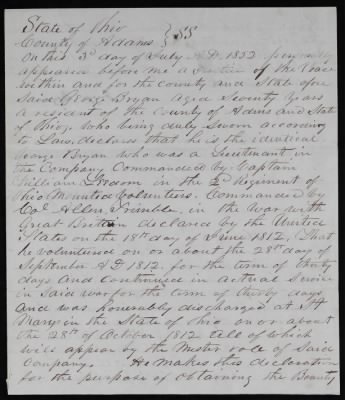 State of Ohio
County of Adams } SS
On this 3d day of July A.D. 1852 personally
appeared before me a Justice of the Peace
within and for the county and State afore
Said George Bryan Aged Seventy Years
a resident of the County of Adams and State
of Ohio, who being duly Sworn according
to Law, declares that he is the identical
George Bryan who was a Lieutenant in
the Company Commanded by Captain
William Gresom in the Regiment of
Ohio Mounted Volunteers. Commanded by
Col Allen Trimble, in the war with
Great Britain declared by the United
States on the 18th day of June 1812. That
he volunteered on or about the 28th day of
September AD 1812. for the term of thirty
days And Continued in actual Service
in Said war for the term of thirty days
And was honorably discharged at St
Marys in the State of Ohio on or about
the 28th of October 1812 all of which
will appear by the Muster role of Said
Company. He makes this declaration
for the purpose of obtaining the Bounty